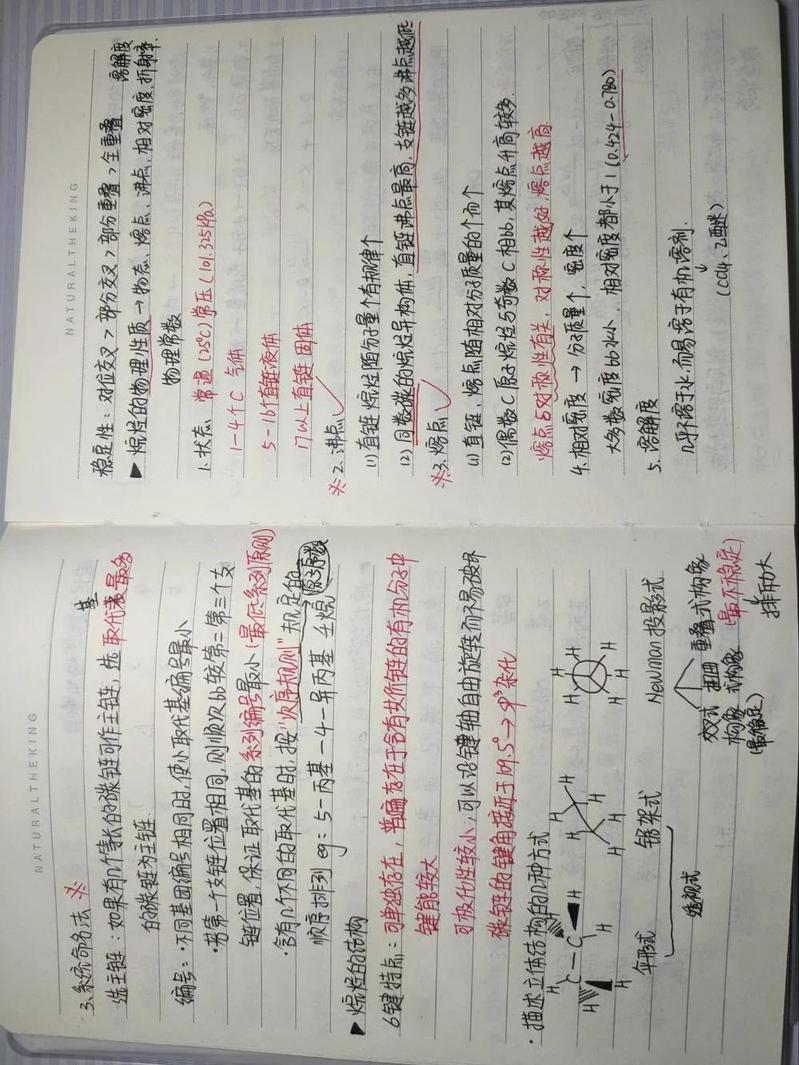 NATURALTHEKING
3、系统命名法 ※
选主链：如果有几个等长的碳链可作主链，选取代基最多
的碳链为主链.
编号：·不同基团编号相同时，使小取代基编号最小
·若第一个支链位置相同，则顺次bb较第二第三个支
链位置，保证取代基的系列编号最小(最低系列原则)
·含有几个不同的取代基时，按"次序规则"规定的→原子序数
顺序排列 eg：5-丙基-4-异丙基壬烷
▶烷烃的结构
σ键特点：可单独存在，普遍存在于含有共价键的有机分子中
键能较大
可极化性较小，可以沿键轴自由旋转而不易破坏
碳链的键角接近于109.5°→sp³杂化
·描述立体结构的几种方式
H H H C-C H H H
H H H H H H
H H H H H H
伞形式 锯架式 Newman投影式
透视式
交叉式构象 (最稳定) 扭曲式构象 重叠式构象 (最不稳定)
排斥力大
NATURALTHEKING
稳定性：对位交叉>部分交叉>部分重叠>全重叠
▶烷烃的物理性质→物态、熔点、沸点、相对密度、折射率. 溶解度
物理常数
1、状态 常温(25C)常压(101.325kPa)
1-4个C 气体
5-16直链液体
17以上直链固体
※2、沸点
(1)直链烷烃随分子量个有规律个
(2)同数碳的烷烃异构体，直链沸点最高，支链越多沸点越低
※3、熔点
(1)直链，熔点随相对分子质量的个而个
(2)偶数C原子烷烃与奇数C相bb，其熔点升高较多.
熔点与对称性有关，对称性越好，熔点越高.
4、相对密度→分子质量个，密度个
大多数密度bb水小，相对密度都小于1(0.424-0.780)
5、溶解度
几乎不溶于水，而易溶于有机溶剂.
(CCl4、乙醚)